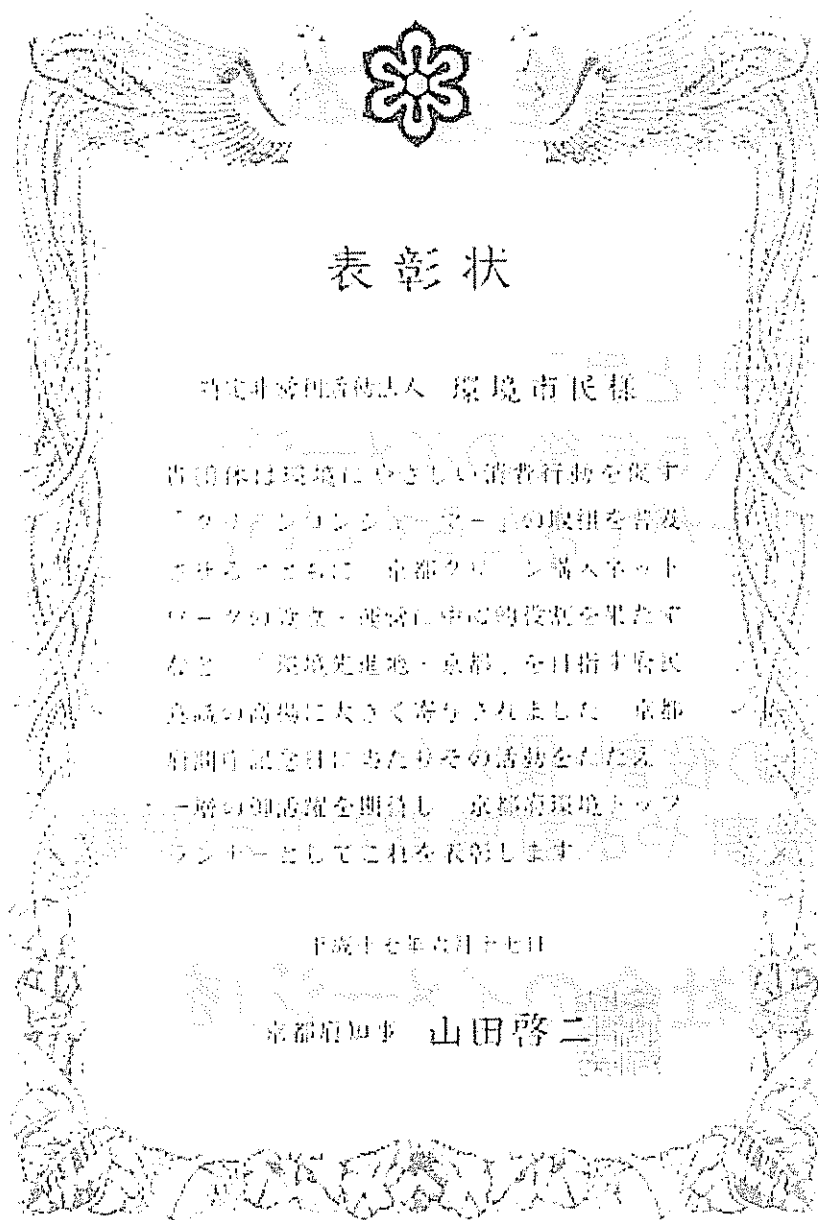 表彰状
特定非営利活動法人 環境市民様
貴団体は環境にやさしい消費行動を促す
「グリーンコンシューマー」の取組を普及
させるとともに 京都グリーン購入ネット
ワークの設立・運営に中心的役割を果たす
など 「環境先進地・京都」を目指す府民
意識の高揚に大きく寄与されました 京都
府開庁記念日にあたりその活動をたたえ
一層の御活躍を期待し 京都府環境トップ
ランナーとしてこれを表彰します
平成十七年六月十七日
京都府知事 山田啓二